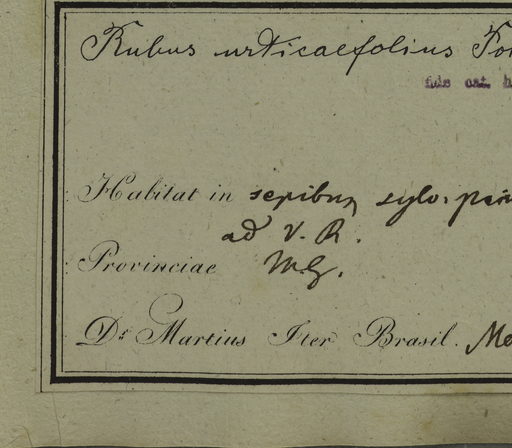 Rubus urticaefolius
fide cat. h
Habitat in sepibus, sylv.
ad V. R.
Provinciae M.G.
Dr. Martius Iter Brasil.